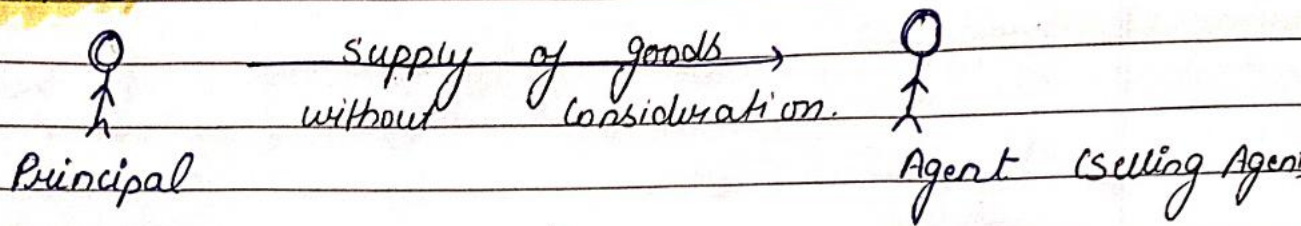 Supply of goods
without Consideration.
Principal Agent (Selling Agent